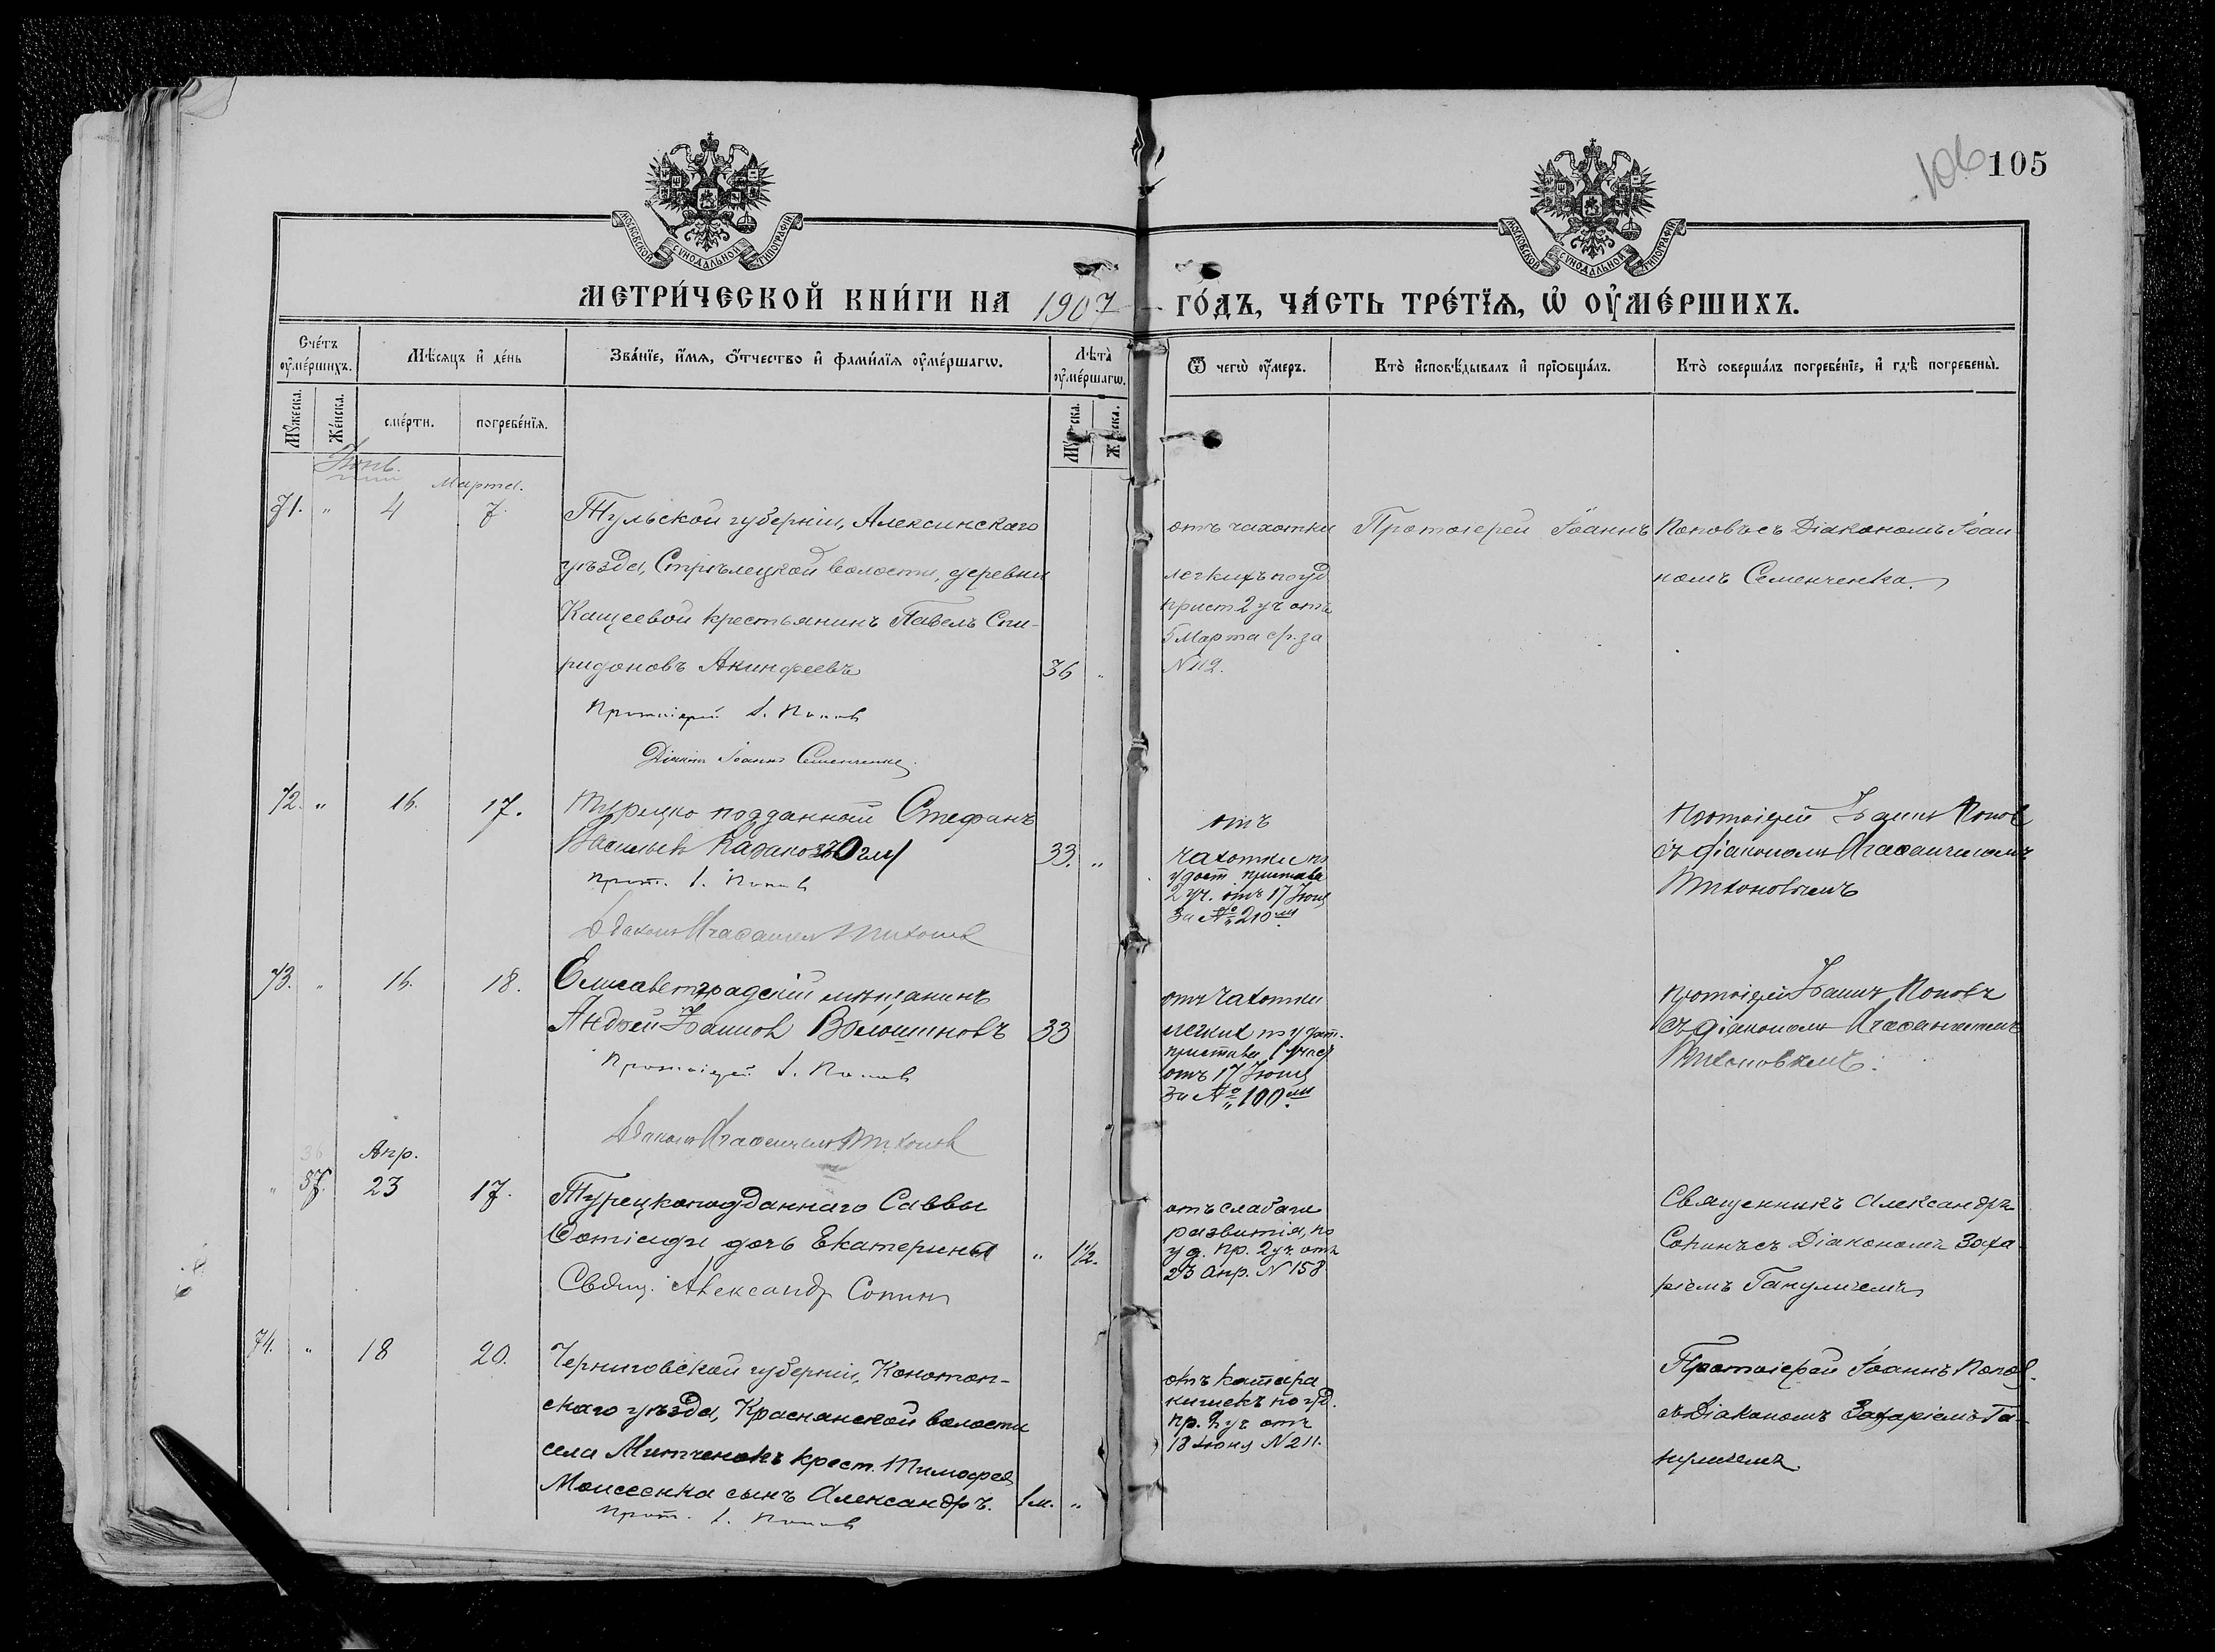 106 105
МОСКОВСКОЙ СѴНОДАЛЬНОЙ ТИПОГРАФІИ
МОСКОВСКОЙ СѴНОДАЛЬНОЙ ТИПОГРАФІИ
МЕТРИ́ЧЕСКОЙ КНИ́ГИ НА 1907 ГО́ДЪ, ЧА́СТЬ ТРЕ́ТЇѦ, Ѡ҆ ОУ҆МЕ́РШИХЪ.
Сче́тъ оу҆ме́ршихъ.
Мѣ́сяцъ и҆ де́нь
Зва́нїе, и҆́мѧ, ѻ҆́тчество и҆ фами́лїѧ оу҆ме́ршагѡ.
Лѣ́та оу҆ме́ршагѡ.
Ѿ чегѡ̀ оу҆́меръ.
Кто̀ и҆сповѣ́дывалъ и҆ прїѻбща́лъ.
Кто̀ соверша́лъ погребе́нїе, и҆ гдѣ̀ погребены̀.
Мꙋ́жеска.
Же́нска.
сме́рти.
погребе́нїѧ.
Марта.
71. " 4 7.
Тульской губерніи, Алексинскаго
уѣзда, Стрѣлецкой волости, деревни
Кащеевой крестьянинъ Павелъ Спи-
ридоновъ Акинфеевъ 36 "
Протоіерей І. Попов
Діаконъ Іоаннъ Семенченко
отъ чахотки
легкихъ по уд
прист 2 уч отъ
5 Марта с/г. за
N 112.
Протоіерей Іоаннъ Поповъ съ Діакономъ Іоан
номъ Семенченка.
72. " 16. 17.
Турецко подданный Стефанъ
Васильевъ Казанозъ Оглы 33. "
прот. І. Попов
Діаконъ Тихонов
отъ
чахотки по
удост пристава
2 уч. отъ 17 Іюня
за № 210
Протоіерей Іоаннъ Попов
съ діакономъ
Тихоновымъ
73. " 16. 18.
Елисаветградскій мѣщанинъ
Андрей Іоаннов Волошиновъ 33
Протоіерей І. Попов
Діаконъ Тихонов
отъ чахотки
легких по удост.
пристава 1 участ
отъ 17 Іюня
за № 100
протоіерей Іоаннъ Поповъ
съ діакономъ
Тихоновымъ.
36 Апр.
" 37. 23 17.
Турецкоподданнаго Саввы
дочь Екатерина " 1½.
Свящ. Александр Сопин
отъ слабаго
развитія, по
уд. пр. 2 уч отъ
23 Апр. N 158
Священникъ Александръ
Сопинъ съ Діакономъ Заха
ріемъ
74. " 18 20.
Черниговской губерніи, Конотоп-
скаго уѣзда, Краснянской волости
села Митченокъ крест. Тимофея
Моисеенка сынъ Александръ. 1 м. "
прот. І. Попов
отъ катара
кишекъ по уд.
пр. 2 уч отъ
18 Іюня N 211.
Протоіерей Іоаннъ Попов
съ Діакономъ Захаріемъ Га-